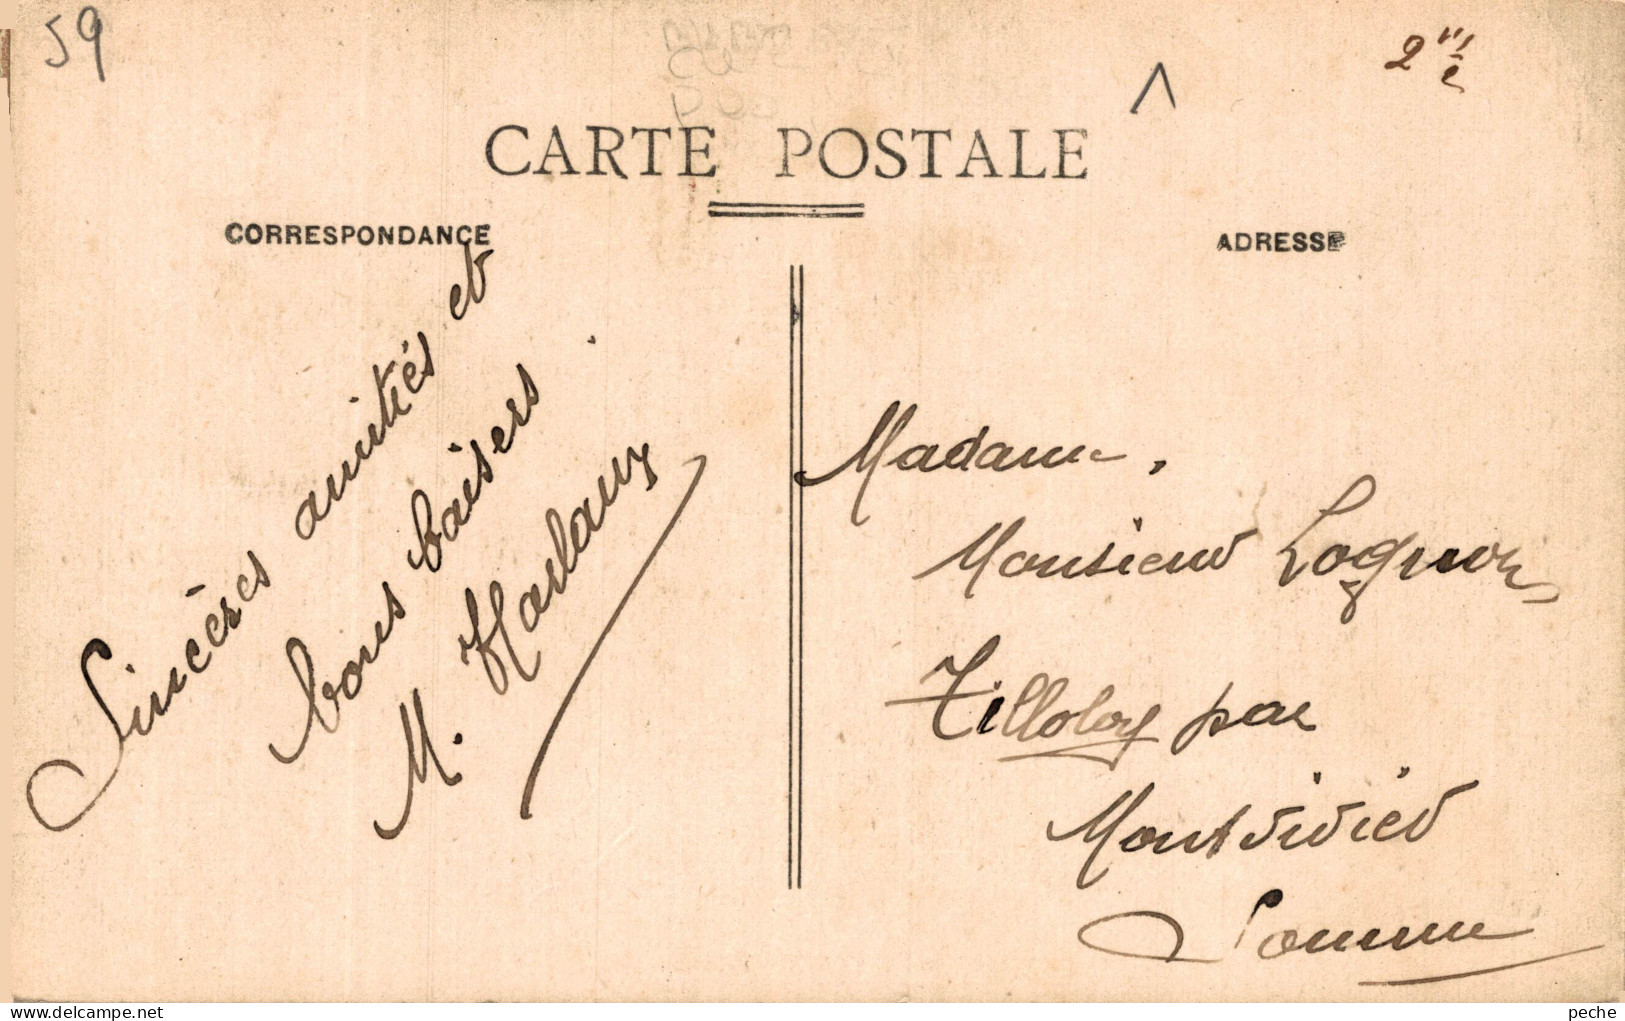 59
2"½
CARTE POSTALE
CORRESPONDANCE
ADRESSE
Sincères amitiés et
bons baisers.
M. Harlaux
Madame,
Monsieur Lognon
Tilloloy par
Montdidier
Somme
peche